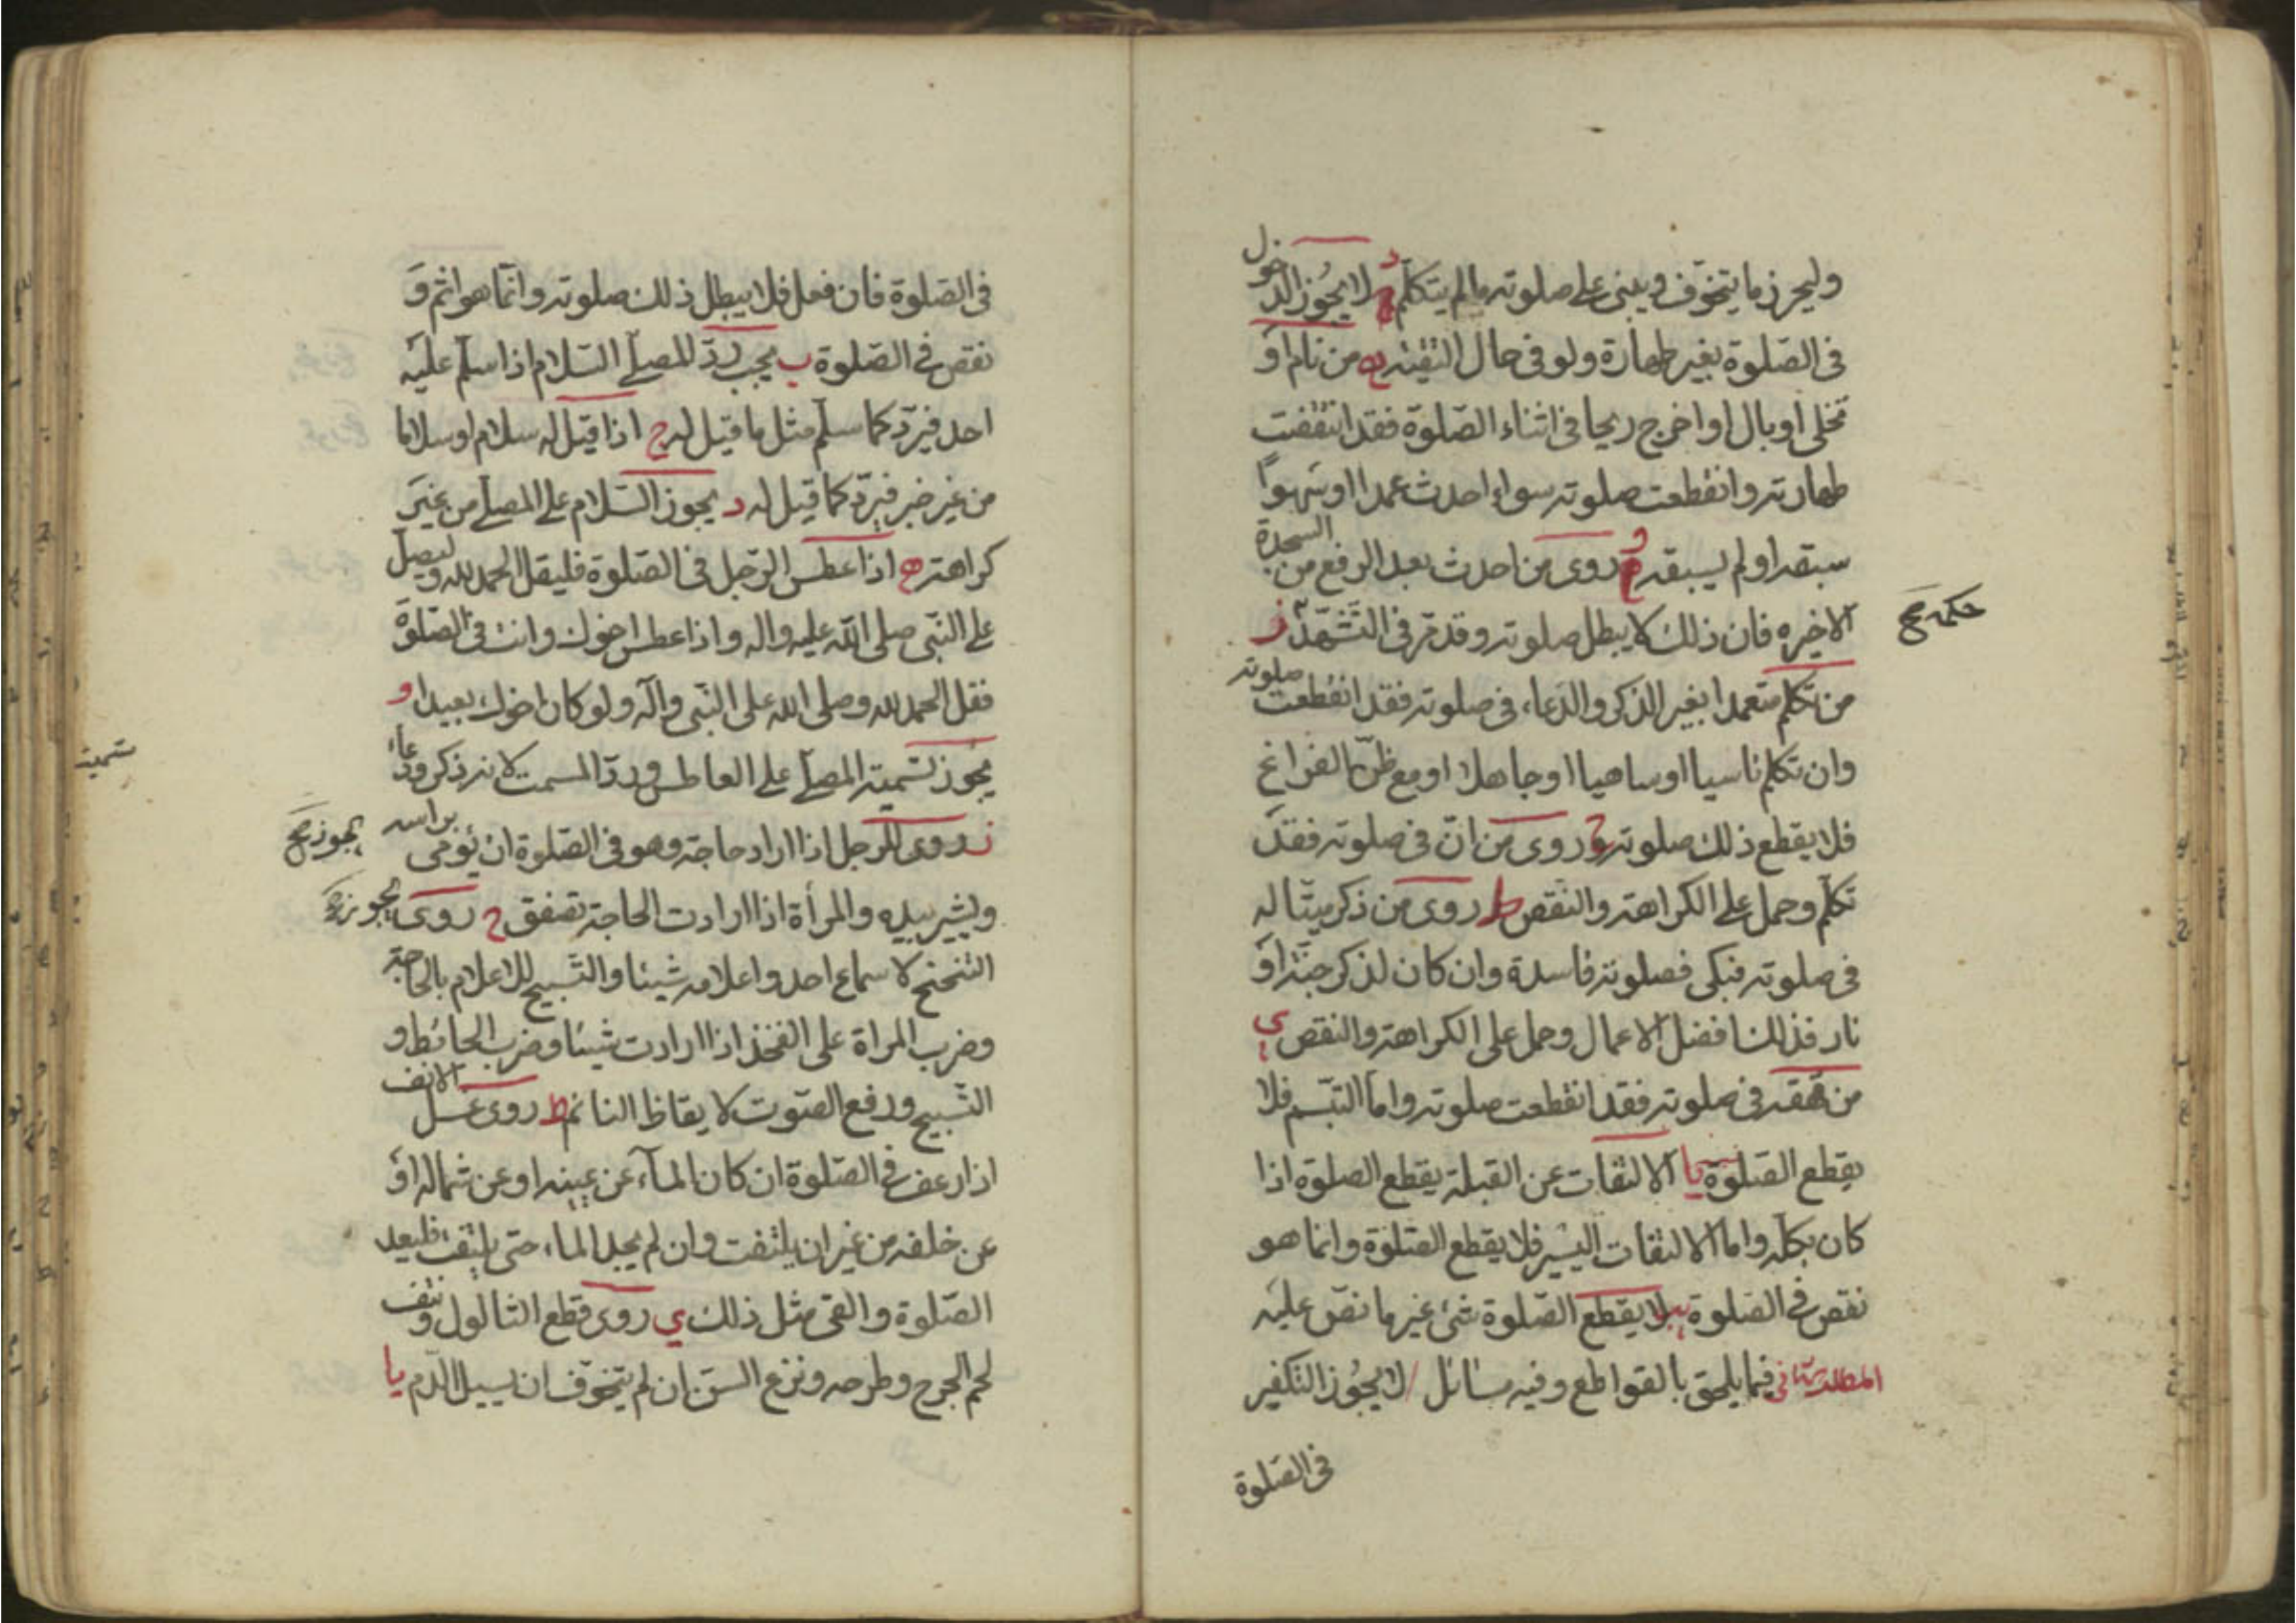 وليحرز ما يتخوف ويبنى على صلوته ما لم يتكلم د لا يجوز الدخول
فى الصلوة بغير طهارة ولو فى حال التقية ه من نام او
تخلى او بال او اخرج ريحا فى اثناء الصلوة فقد انتقضت
طهارته وانقطعت صلوته سواء احدث عمدا او سهوا
سبقه او لم يسبقه و روى من احدث بعد الرفع من السجدة
الاخيره فان ذلك لا يبطل صلوته وقد مر فى التشهد ز
من تكلم متعمدا بغير الذكر والدعاء فى صلوته فقد انقطعت صلوته
وان تكلم ناسيا او ساهيا او جاهلا او مع ظن الفراغ
فلا يقطع ذلك صلوته ح روى من ان فى صلوته فقد
تكلم وحمل على الكراهة والنقص ط روى من ذكر ميتا له
فى صلوته فبكى فصلوته فاسدة وان كان لذكر جنة او
نار فذلك افضل الاعمال وحمل على الكراهة والنقص ى
من قهقه فى صلوته فقد انقطعت صلوته واما التبسم فلا
يقطع الصلوة يا الالتفات عن القبلة يقطع الصلوة اذا
كان بكله واما الالتفات اليسير فلا يقطع الصلوة وانما هو
نقص فى الصلوة يب لا يقطع الصلوة شئ غير ما نص عليه
المطلب الثانى فيما يلحق بالقواطع وفيه مسائل ا لا يجوز التكفير
فى الصلوة
فى الصلوة فان فعل فلا يبطل ذلك صلوته وانما هو اثم و
نقص فى الصلوة ب يجب رد المصلى السلام اذا سلم عليه
احد فيرد كما سلم مثل ما قيل له ج اذا قيل له سلام او سلاما
من غير خبر فيرد كما قيل له د يجوز السلام على المصلى من غير
كراهة ه اذا عطس الرجل فى الصلوة فليقل الحمد لله وليصل
على النبى صلى الله عليه واله واذا عطس اخوك وانت فى الصلوة
فقل الحمد لله وصلى الله على النبى وآله ولو كان اخوك بعيدا و
يجوز تسمية المصلى على العاطس ورد المسمت لانه ذكر ودعاء
تسميت
ز روى للرجل اذا اراد حاجة وهو فى الصلوة ان يؤمى براسه
ويشير بيده والمرأة اذا ارادت الحاجة تصفق ح روى يجوز
التنحنح لاسماع احد واعلامه شيئا والتسبيح للاعلام بالحاجة
وضرب المراة على الفخذ اذا ارادت شيئا وضرب الحائط و
التسبيح ورفع الصوت لايقاظ النائم ط روى غسل الانف
اذا رعف فى الصلوة ان كان الماء عن يمينه او عن شماله او
عن خلفه من غير ان يلتفت وان لم يجد الماء حتى يلتفت فليعد
الصلوة والقى مثل ذلك ى روى قطع الثالول ونتف
لحم الجرح وطرحه ونزع السن ان لم يتخوف ان يسيل الدم يا